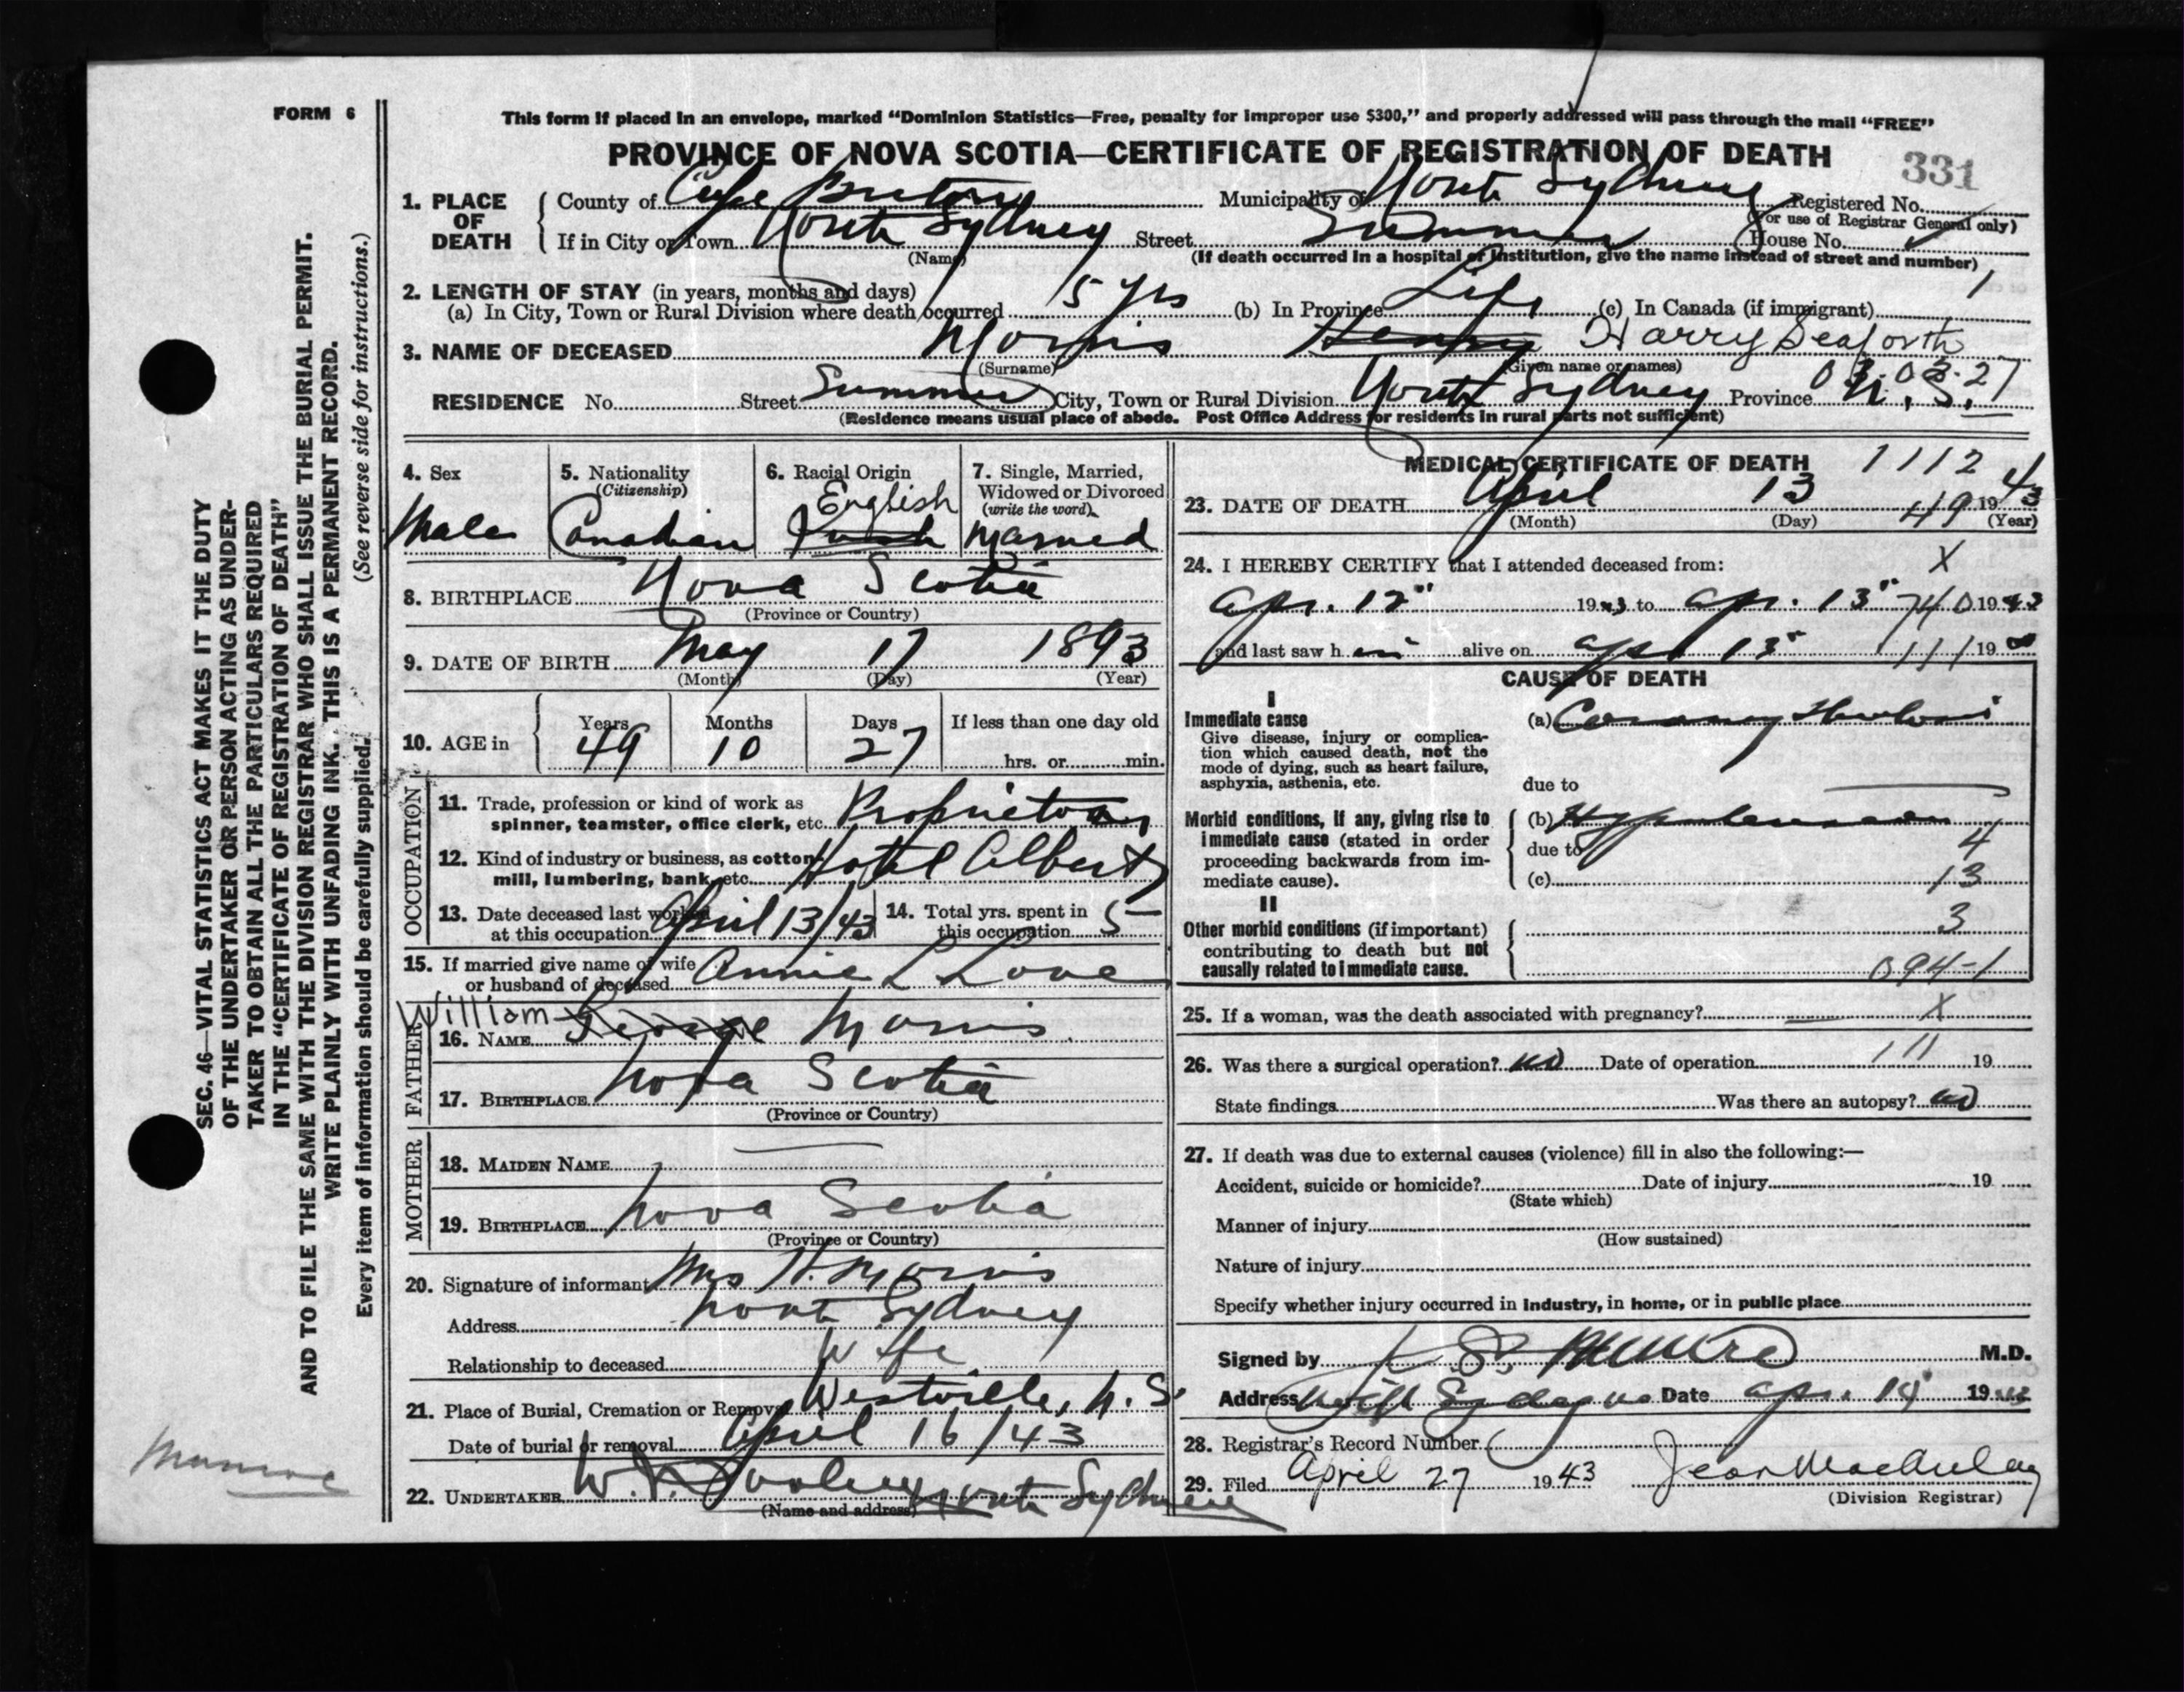 FORM 6
This form if placed in an envelope, marked “Dominion Statistics—Free, penalty for improper use $300,” and properly addressed will pass through the mail “FREE”
PROVINCE OF NOVA SCOTIA—CERTIFICATE OF REGISTRATION OF DEATH
331
1. PLACE OF DEATH
County of Cape Breton Municipality of North Sydney Registered No.
(For use of Registrar General only)
If in City or Town North Sydney Street Summer House No.
(Name)
(If death occurred in a hospital or institution, give the name instead of street and number)
2. LENGTH OF STAY (in years, months and days)
(a) In City, Town or Rural Division where death occurred 5 yrs (b) In Province Life (c) In Canada (if immigrant)
3. NAME OF DECEASED Morris Henry Harry Seaforth
(Surname) (Given name or names)
03.03.27
RESIDENCE No. Street Summer City, Town or Rural Division North Sydney Province N.S.
(Residence means usual place of abode. Post Office Address for residents in rural parts not sufficient)
4. Sex
Male
5. Nationality
(Citizenship)
Canadian
6. Racial Origin
English
7. Single, Married,
Widowed or Divorced
(write the word)
Married
8. BIRTHPLACE Nova Scotia
(Province or Country)
9. DATE OF BIRTH May 17 1893
(Month) (Day) (Year)
10. AGE in
Years Months Days If less than one day old
49 10 27 hrs. or min.
OCCUPATION
11. Trade, profession or kind of work as
spinner, teamster, office clerk, etc. Proprietor
12. Kind of industry or business, as cotton
mill, lumbering, bank, etc. Hotel Albert
13. Date deceased last worked
at this occupation April 13/43
14. Total yrs. spent in
this occupation 5
15. If married give name of wife
or husband of deceased Annie L Love
FATHER
William
16. NAME George Morris
17. BIRTHPLACE Nova Scotia
(Province or Country)
MOTHER
18. MAIDEN NAME
19. BIRTHPLACE Nova Scotia
(Province or Country)
20. Signature of informant Mrs H. Morris
Address North Sydney
Relationship to deceased Wife
21. Place of Burial, Cremation or Removal Westville, N.S.
Date of burial or removal April 16/43
22. UNDERTAKER North Sydney
(Name and address)
MEDICAL CERTIFICATE OF DEATH
1112
23. DATE OF DEATH April 13 1943
49
(Month) (Day) (Year)
24. I HEREBY CERTIFY that I attended deceased from:
X
Apr. 12 1943 to Apr. 13 740 1943
and last saw h im alive on Apl 13 111 19
CAUSE OF DEATH
I
Immediate cause
Give disease, injury or complica-
tion which caused death, not the
mode of dying, such as heart failure,
asphyxia, asthenia, etc.
(a) Coronary Thrombosis
due to
Morbid conditions, if any, giving rise to
immediate cause (stated in order
proceeding backwards from im-
mediate cause).
(b) Hypertension
due to 4
(c) 13
II
Other morbid conditions (if important)
contributing to death but not
causally related to immediate cause.
3
094-1
25. If a woman, was the death associated with pregnancy? X
26. Was there a surgical operation? no Date of operation 111 19
State findings Was there an autopsy? no
27. If death was due to external causes (violence) fill in also the following:—
Accident, suicide or homicide? Date of injury 19
(State which)
Manner of injury
(How sustained)
Nature of injury
Specify whether injury occurred in industry, in home, or in public place
Signed by Munro M.D.
Address North Sydney NS Date Apr. 14 19
28. Registrar's Record Number
29. Filed April 27 1943 Jean MacAulay
(Division Registrar)
SEC. 46—VITAL STATISTICS ACT MAKES IT THE DUTY
OF THE UNDERTAKER OR PERSON ACTING AS UNDER-
TAKER TO OBTAIN ALL THE PARTICULARS REQUIRED
IN THE “CERTIFICATE OF REGISTRATION OF DEATH”
AND TO FILE THE SAME WITH THE DIVISION REGISTRAR WHO SHALL ISSUE THE BURIAL PERMIT.
WRITE PLAINLY WITH UNFADING INK. THIS IS A PERMANENT RECORD.
Every item of information should be carefully supplied. (See reverse side for instructions.)
Munroe